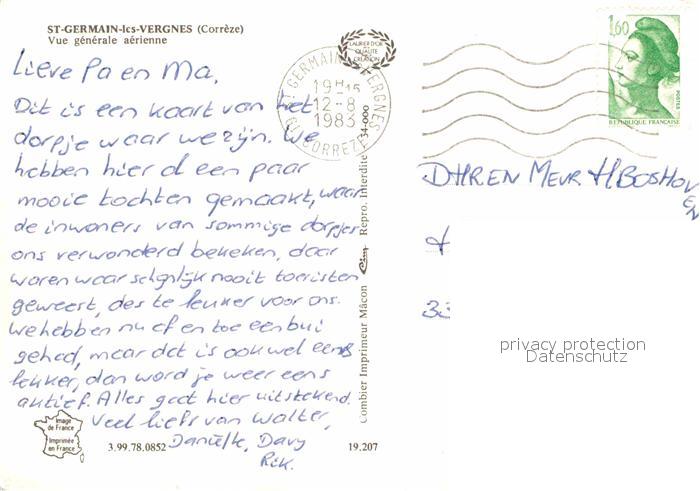 ST-GERMAIN-les-VERGNES (Corrèze)
Vue générale aérienne
Lieve Pa en Ma,
Dit is een kaart van het
dorpje waar we zijn. We
hebben hier al een paar
mooie tochten gemaakt, waar
de inwoners van sommige dorpjes
ons verwonderd bekeken, daar
waren waarschijnlijk nooit toeristen
geweest, des te leuker voor ons.
We hebben nu af en toe een bui
gehad, maar dat is ook wel eens
lekker, dan word je weer eens
aktief. Alles gaat hier uitstekend.
Veel liefs van Walter,
Daniëlle, Davy
Rik.
Image
de France
Imprimée
en France
3.99.78.0852
19.207
LAURIER D'OR
DE LA
QUALITE
DE
CREATION
Combier Imprimeur Mâcon Cim Repro. Interdite 34.000
ST GERMAIN LES VERGNES
19H15
12-8
1983
CORREZE
1,60
POSTES
REPUBLIQUE FRANÇAISE
DHR EN MEVR H BOSHOVEN
privacy protection
Datenschutz